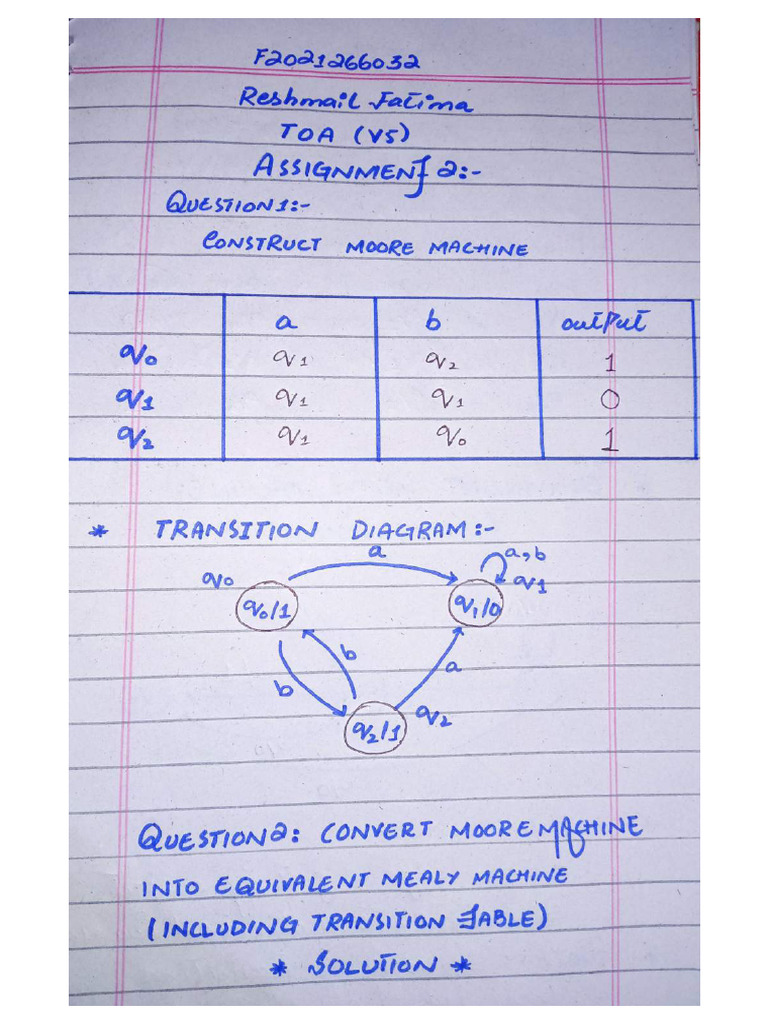 F2021266032
Reshmail Fatima
TOA (V5)
ASSIGNMENT 2:-
QUESTION1:-
CONSTRUCT MOORE MACHINE
a b output
q0 q1 q2 1
q1 q1 q1 0
q2 q1 q0 1
* TRANSITION DIAGRAM:-
a a,b
q0 q1
q0/1 q1/0
b b a
q2/1 q2
QUESTION2: CONVERT MOORE MACHINE
INTO EQUIVALENT MEALY MACHINE
(INCLUDING TRANSITION TABLE)
* SOLUTION *